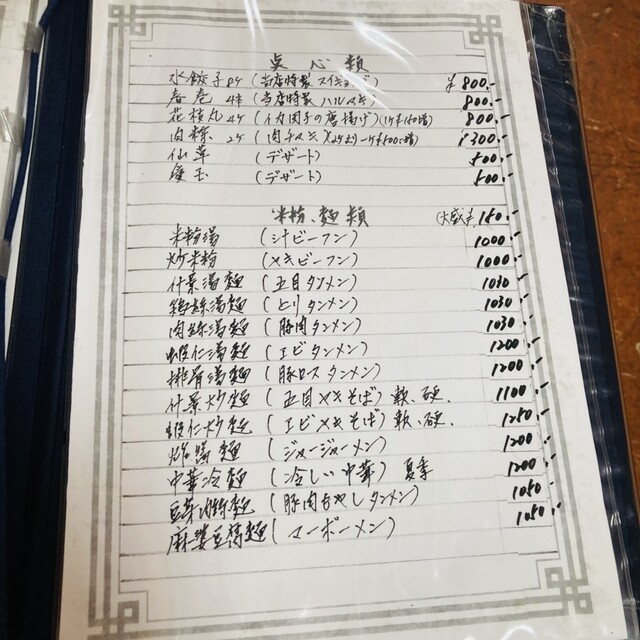 点心類
水餃子8ケ (当店特製 スイギョーザ) ¥800.-
春巻 4本 (当店特製 ハルマキ) 800.-
花枝丸 4ケ (イカ団子の唐揚げ)(1ケ¥150増) 800.-
肉粽 2ケ (肉チマキ) 1300.-
仙草 (デザート) 500.-
愛玉 (デザート) 500.-
米粉、麺類 (大盛¥150.-
米粉湯 (汁ビーフン) 1000.-
炒米粉 (ヤキビーフン) 1000.-
什景湯麺 (五目タンメン) 1030.-
鶏絲湯麺 (とりタンメン) 1030.-
肉絲湯麺 (豚肉タンメン) 1030.-
蝦仁湯麺 (エビタンメン) 1200.-
排骨湯麺 (豚ロスタンメン) 1200.-
什景炒麺 (五目ヤキそば) 軟、硬、 1100.-
蝦仁炒麺 (エビヤキそば) 軟、硬、 1250.-
炸醤麺 (ジャージャーメン) 1200.-
中華冷麺 (冷しい中華) 夏季 1200.-
豆芽肉絲麺 (豚肉もやしタンメン) 1050.-
麻婆豆腐麺 (マーボーメン) 1050.-